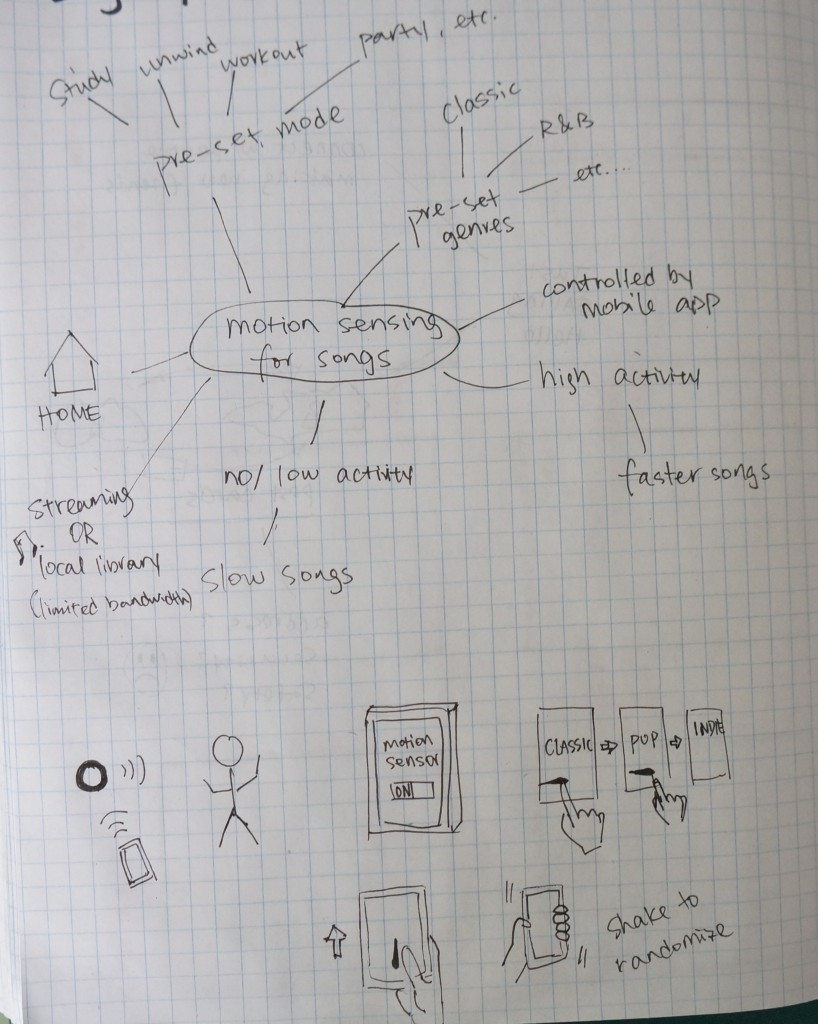 study
unwind
workout
party, etc.
pre-set mode
classic
R&B
etc....
pre-set
genres
controlled by
mobile app
motion sensing
for songs
HOME
high activity
faster songs
no/low activity
slow songs
streaming
OR
local library
(limited bandwidth)
motion
sensor
ON
CLASSIC
POP
INDIE
shake to
randomize